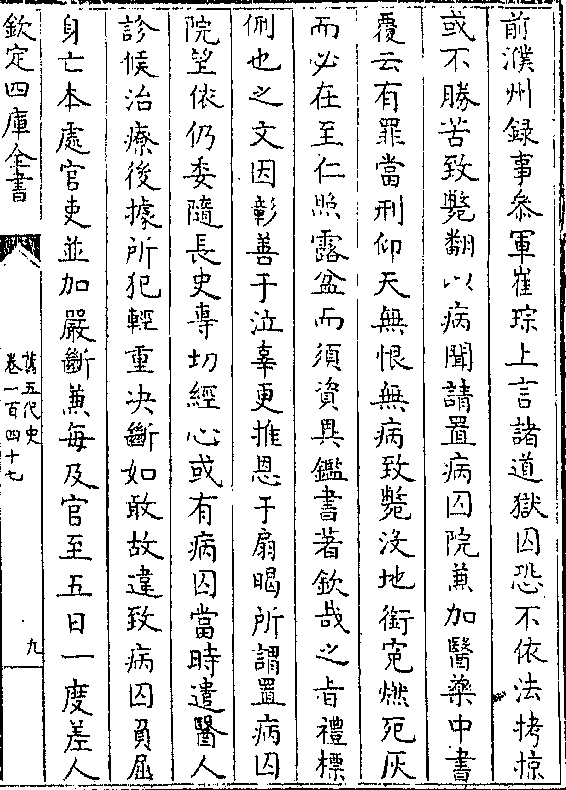 前濮州録事參軍崔琮上言諸道獄囚恐不依法拷掠
或不勝苦致斃翻以病聞請置病囚院兼加醫藥中書
覆云有罪當刑仰天無恨無病致斃没地銜寃燃死灰
而必在至仁照露盆而須資異鑑書著欽哉之旨禮標
侀也之文因彰善于泣辜更推恩于扇暍所謂置病囚
院望依仍委隨長吏専切經心或有病囚當時遣醫人
診候治療後據所犯輕重決斷如敢故違致病囚負屈
身亡本處官吏並加嚴斷兼每及官至五日一度差人
欽定四庫全書
舊五代史
卷一百四十七
九